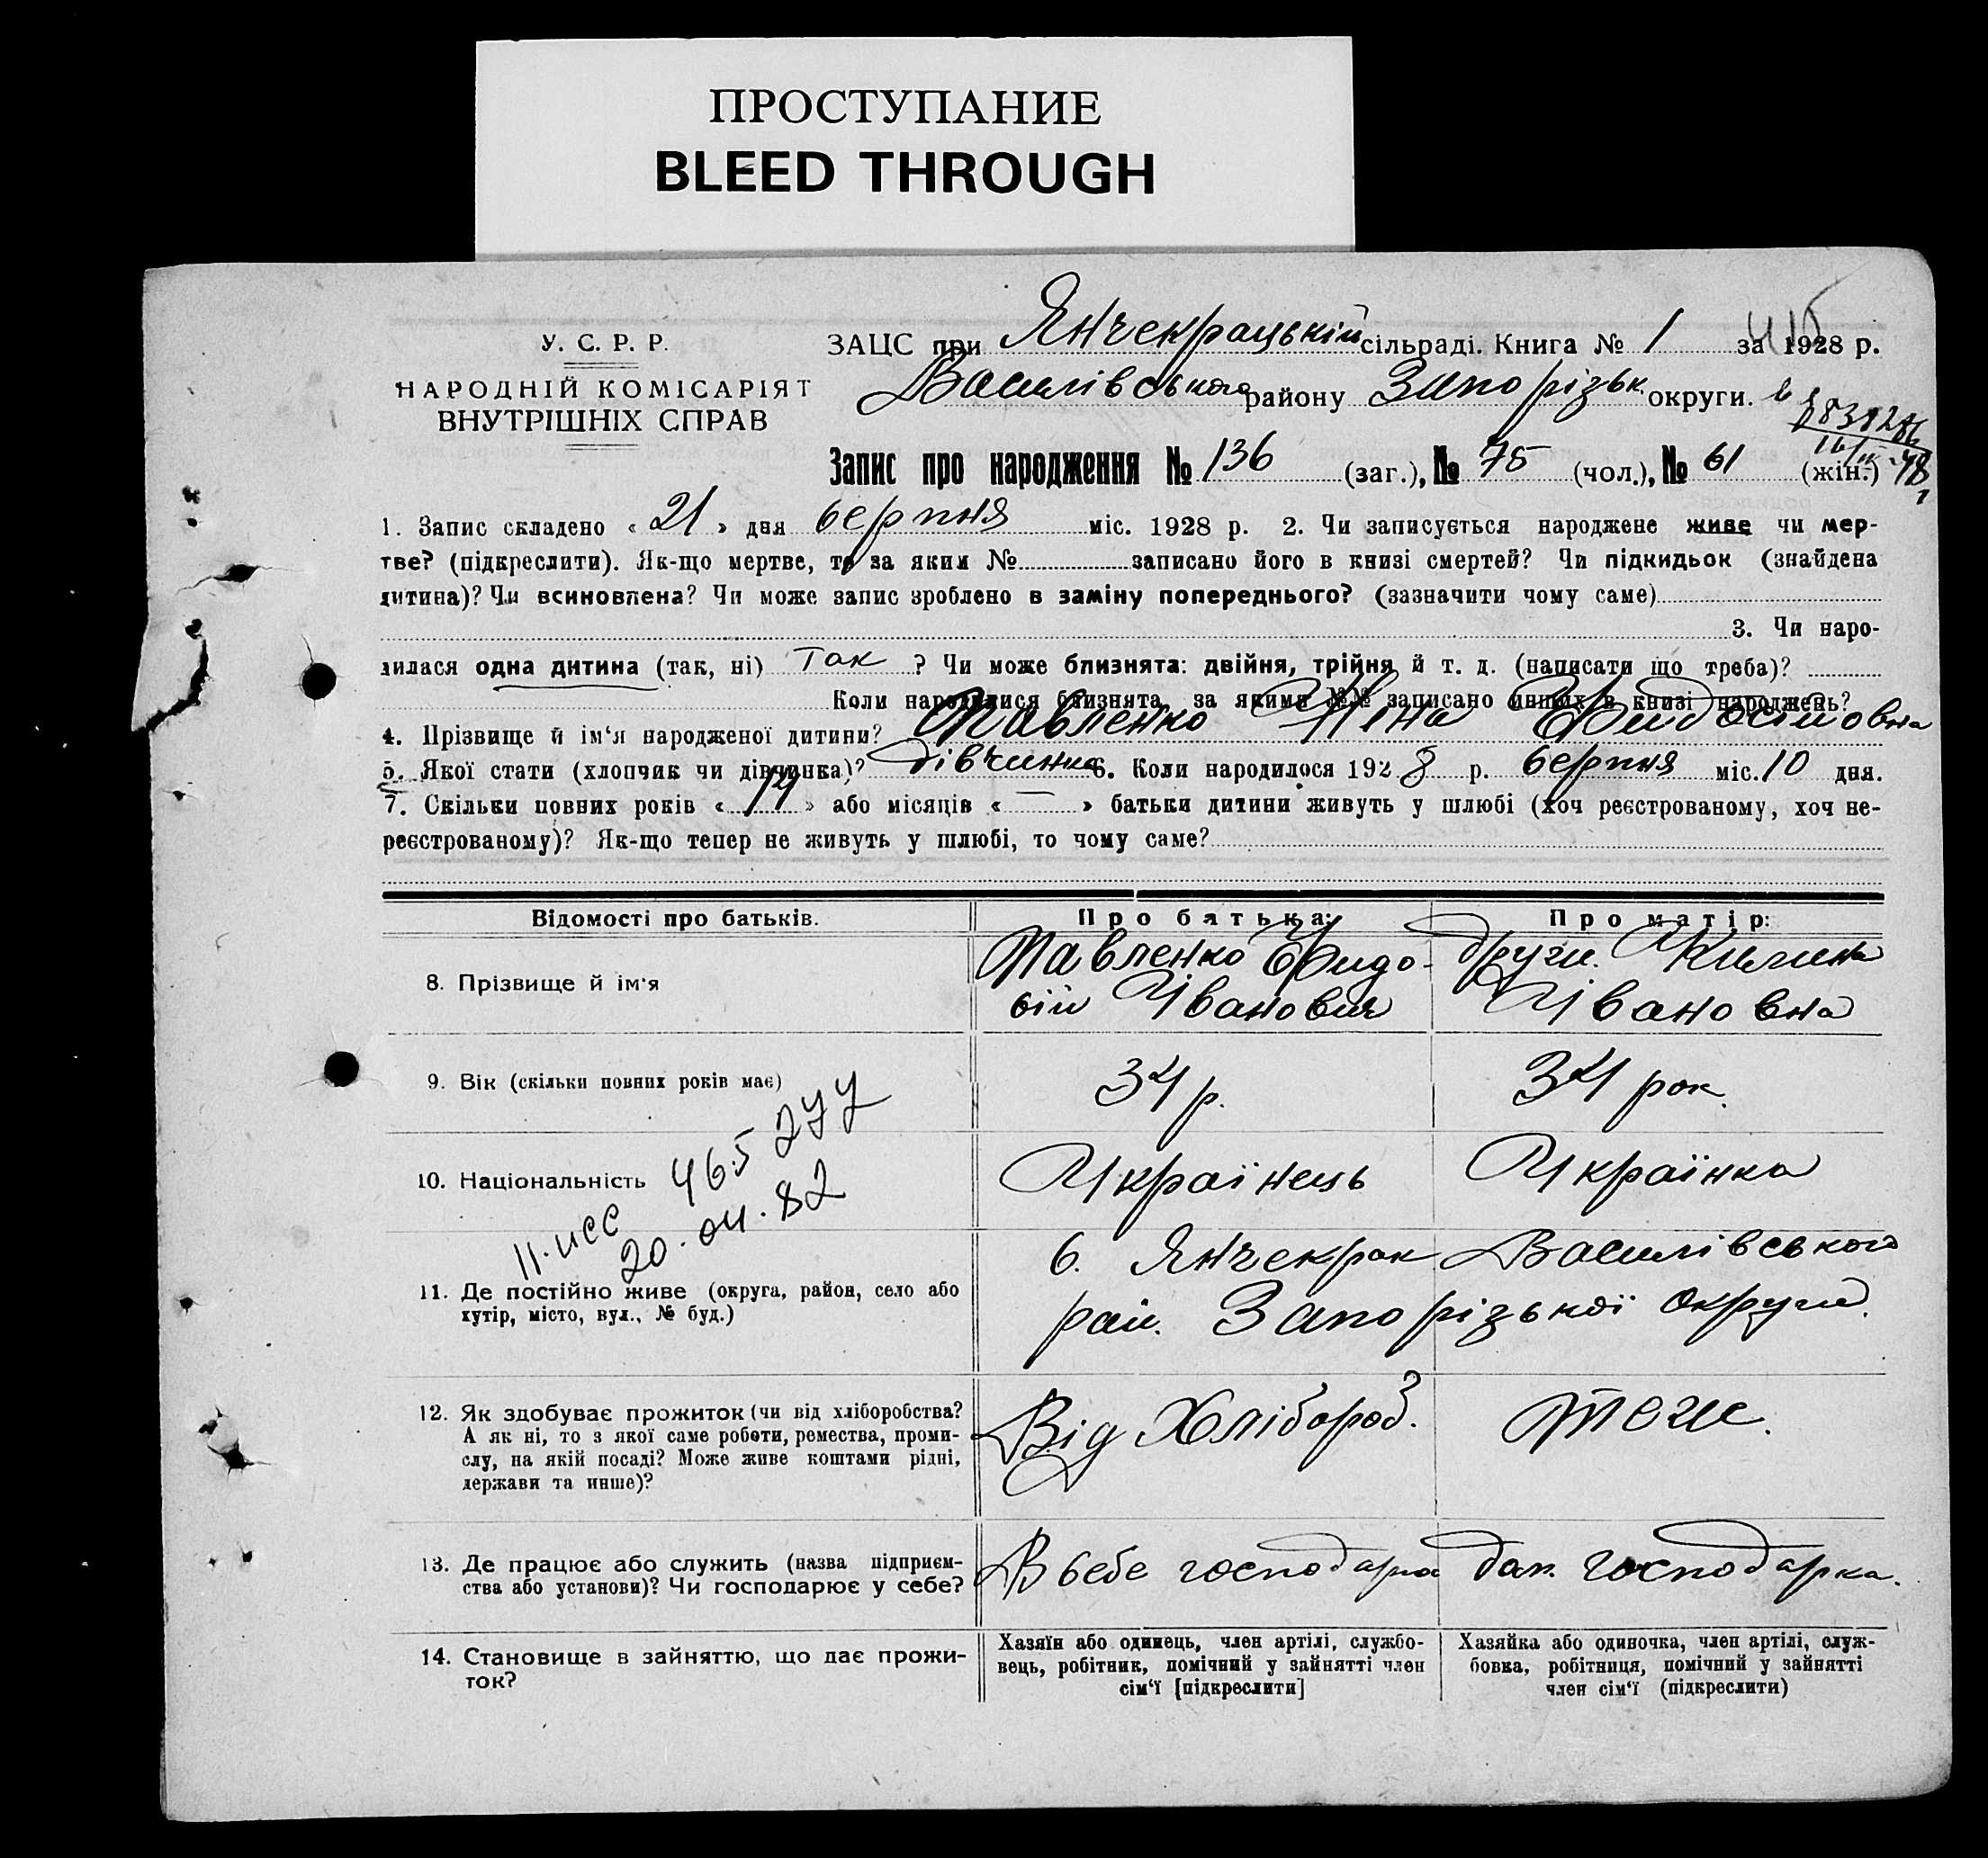 ПРОСТУПАНИЕ
BLEED THROUGH
У. С. Р. Р.
НАРОДНІЙ КОМІСАРІЯТ
ВНУТРІШНІХ СПРАВ
415
ЗАЦС при Янчекрацькій сільраді. Книга № 1 за 1928 р.
Василівського району Запорізьк. округи.
Запис про народження № 136 (заг.), № 75 (чол.), № 61 (жін.)
1. Запис складено « 21 » дня серпня міс. 1928 р. 2. Чи записується народжене живе чи мер-
тве? (підкреслити). Як-що мертве, то за яким № записано його в книзі смертей? Чи підкидьок (знайдена
дитина)? Чи всиновлена? Чи може запис зроблено в заміну попереднього? (зазначити чому саме)
3. Чи наро-
дилася одна дитина (так, ні) так ? Чи може близнята: двійня, трійня й т. д. (написати що треба)?
Коли народилися близнята, за якими №№ записано инших в книзі народжень?
4. Прізвище й ім'я народженої дитини? Павленко Ніна
5. Якої стати (хлопчик чи дівчинка)? дівчинка 6. Коли народилося 1928 р. серпня міс. 10 дня.
7. Скільки повних років « 14 » або місяців « — » батьки дитини живуть у шлюбі (хоч реєстрованому, хоч не-
реєстрованому)? Як-що тепер не живуть у шлюбі, то чому саме?
Відомості про батьків.
Про батька:
Про матір:
8. Прізвище й ім'я
Павленко
Іванович
друж. Килина
Івановна
9. Вік (скільки повних років має)
34 р.
34 рок.
10. Національність
Українець
Українка
465277
20.04.82
11. Де постійно живе (округа, район, село або
хутір, місто, вул., № буд.)
с. Янчекрак Василівського
рай. Запорізької округи.
12. Як здобуває прожиток (чи від хліборобства?
А як ні, то з якої саме роботи, ремества, проми-
слу, на якій посаді? Може живе коштами рідні,
держави та инше)?
Від Хлібороб.
теж.
13. Де працює або служить (назва підприєм-
ства або установи)? Чи господарює у себе?
В себе господарка
дом. господарка.
14. Становище в зайняттю, що дає прожи-
ток?
Хазяїн або одинець, член артілі, службо-
вець, робітник, помічний у зайнятті член
сім'ї [підкреслити]
Хазяйка або одиночка, член артілі, служ-
бовка, робітниця, помічний у зайнятті
член сім'ї (підкреслити)